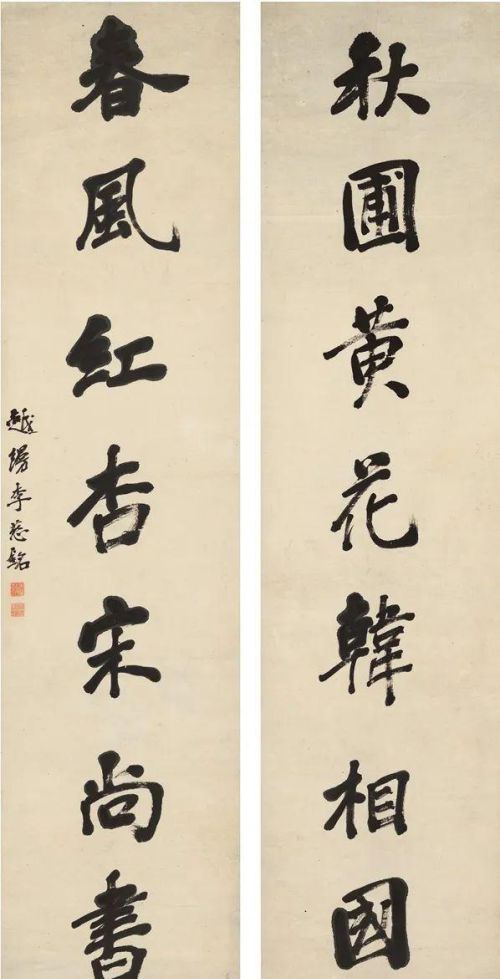 秋圃黄花韓相國
春風紅杏宋尚書
越縵李慈銘